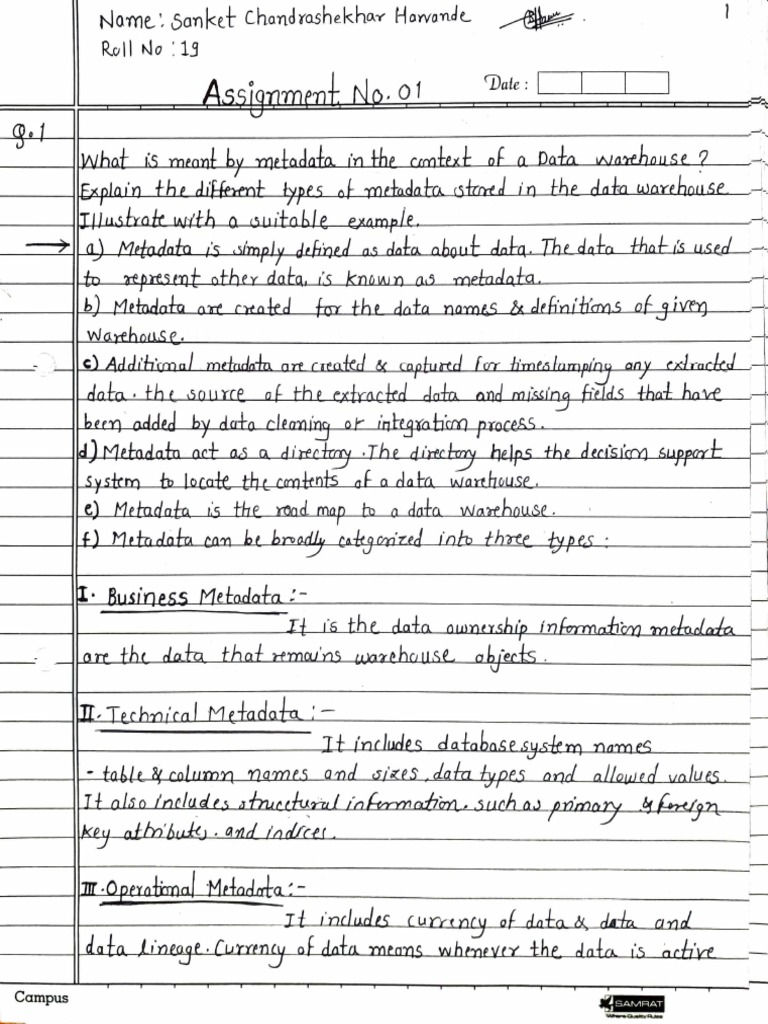 Name: Sanket Chandrashekhar Harvande
1
Roll No : 19
Assignment No. 01
Date :
Q.1
What is meant by metadata in the context of a Data warehouse ?
Explain the different types of metadata stored in the data warehouse
Illustrate with a suitable example.
→ a) Metadata is simply defined as data about data. The data that is used
to represent other data, is known as metadata.
b) Metadata are created for the data names & definitions of given
warehouse.
c) Additional metadata are created & captured for timestamping any extracted
data. the source of the extracted data and missing fields that have
been added by data cleaning or integration process.
d) Metadata act as a directory. The directory helps the decision support
system to locate the contents of a data warehouse.
e) Metadata is the road map to a data warehouse.
f) Metadata can be broadly categorized into three types :
I. Business Metadata :-
It is the data ownership information metadata
are the data that remains warehouse objects.
II. Technical Metadata :-
It includes database system names
- table & column names and sizes, data types and allowed values.
It also includes structural information. such as primary & foreign
key attributes. and indices.
III. Operational Metadata :-
It includes currency of data & data and
data lineage. Currency of data means whenever the data is active
Campus
SAMRAT
Where Quality Rules